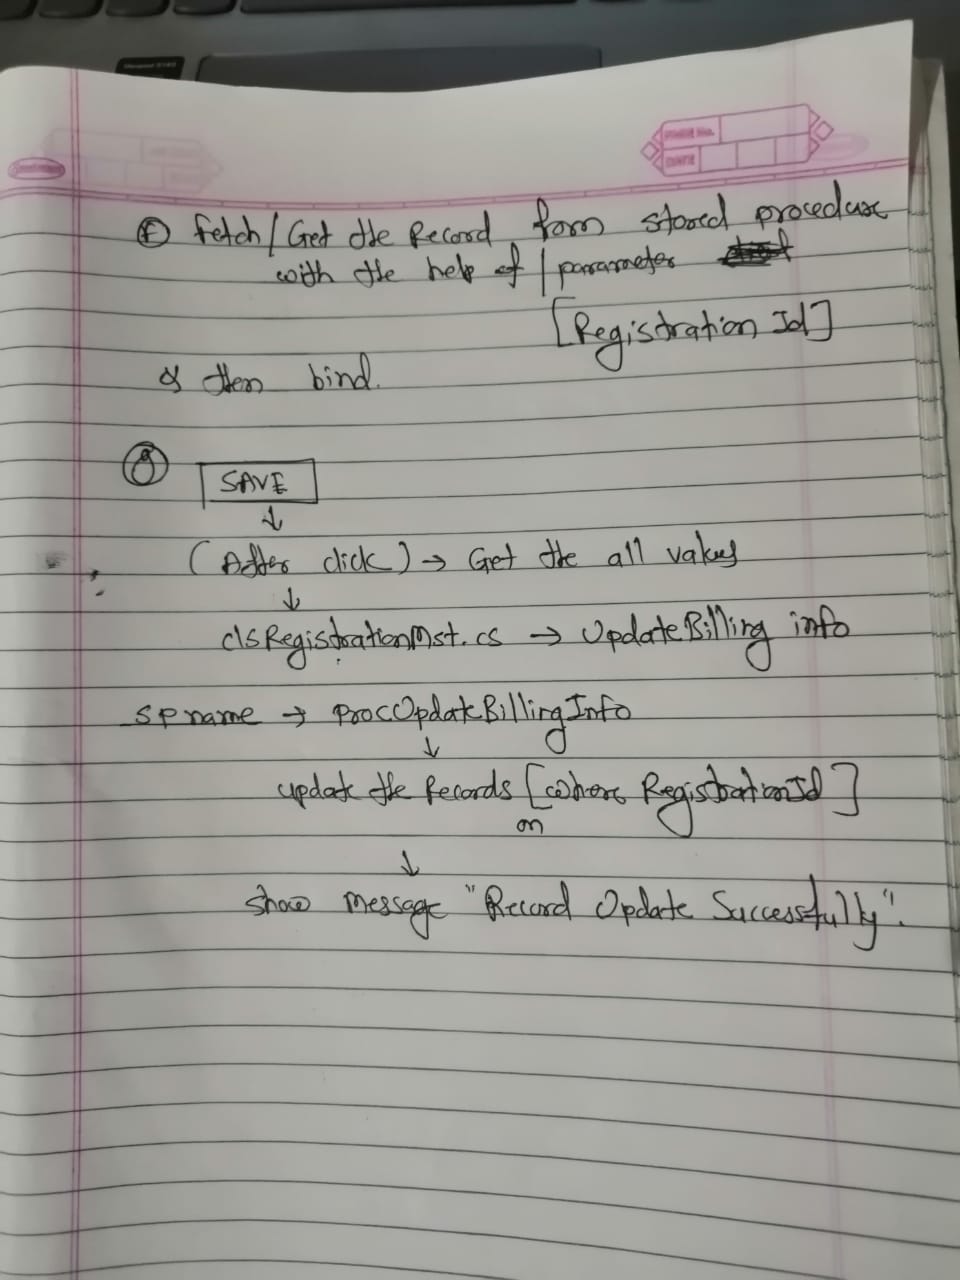 PAGE No.
DATE
(F) Fetch / Get the Record form stored procedure
with the help of / parameter
[Registration Id]
& then bind.
(g) SAVE
↓
(After click) → Get the all values
↓
clsRegistrationMst.cs → UpdateBilling info
SP name → ProcUpdateBillingInfo
↓
update the Records [where RegistrationId]
on
↓
show message "Record Update Successfully".